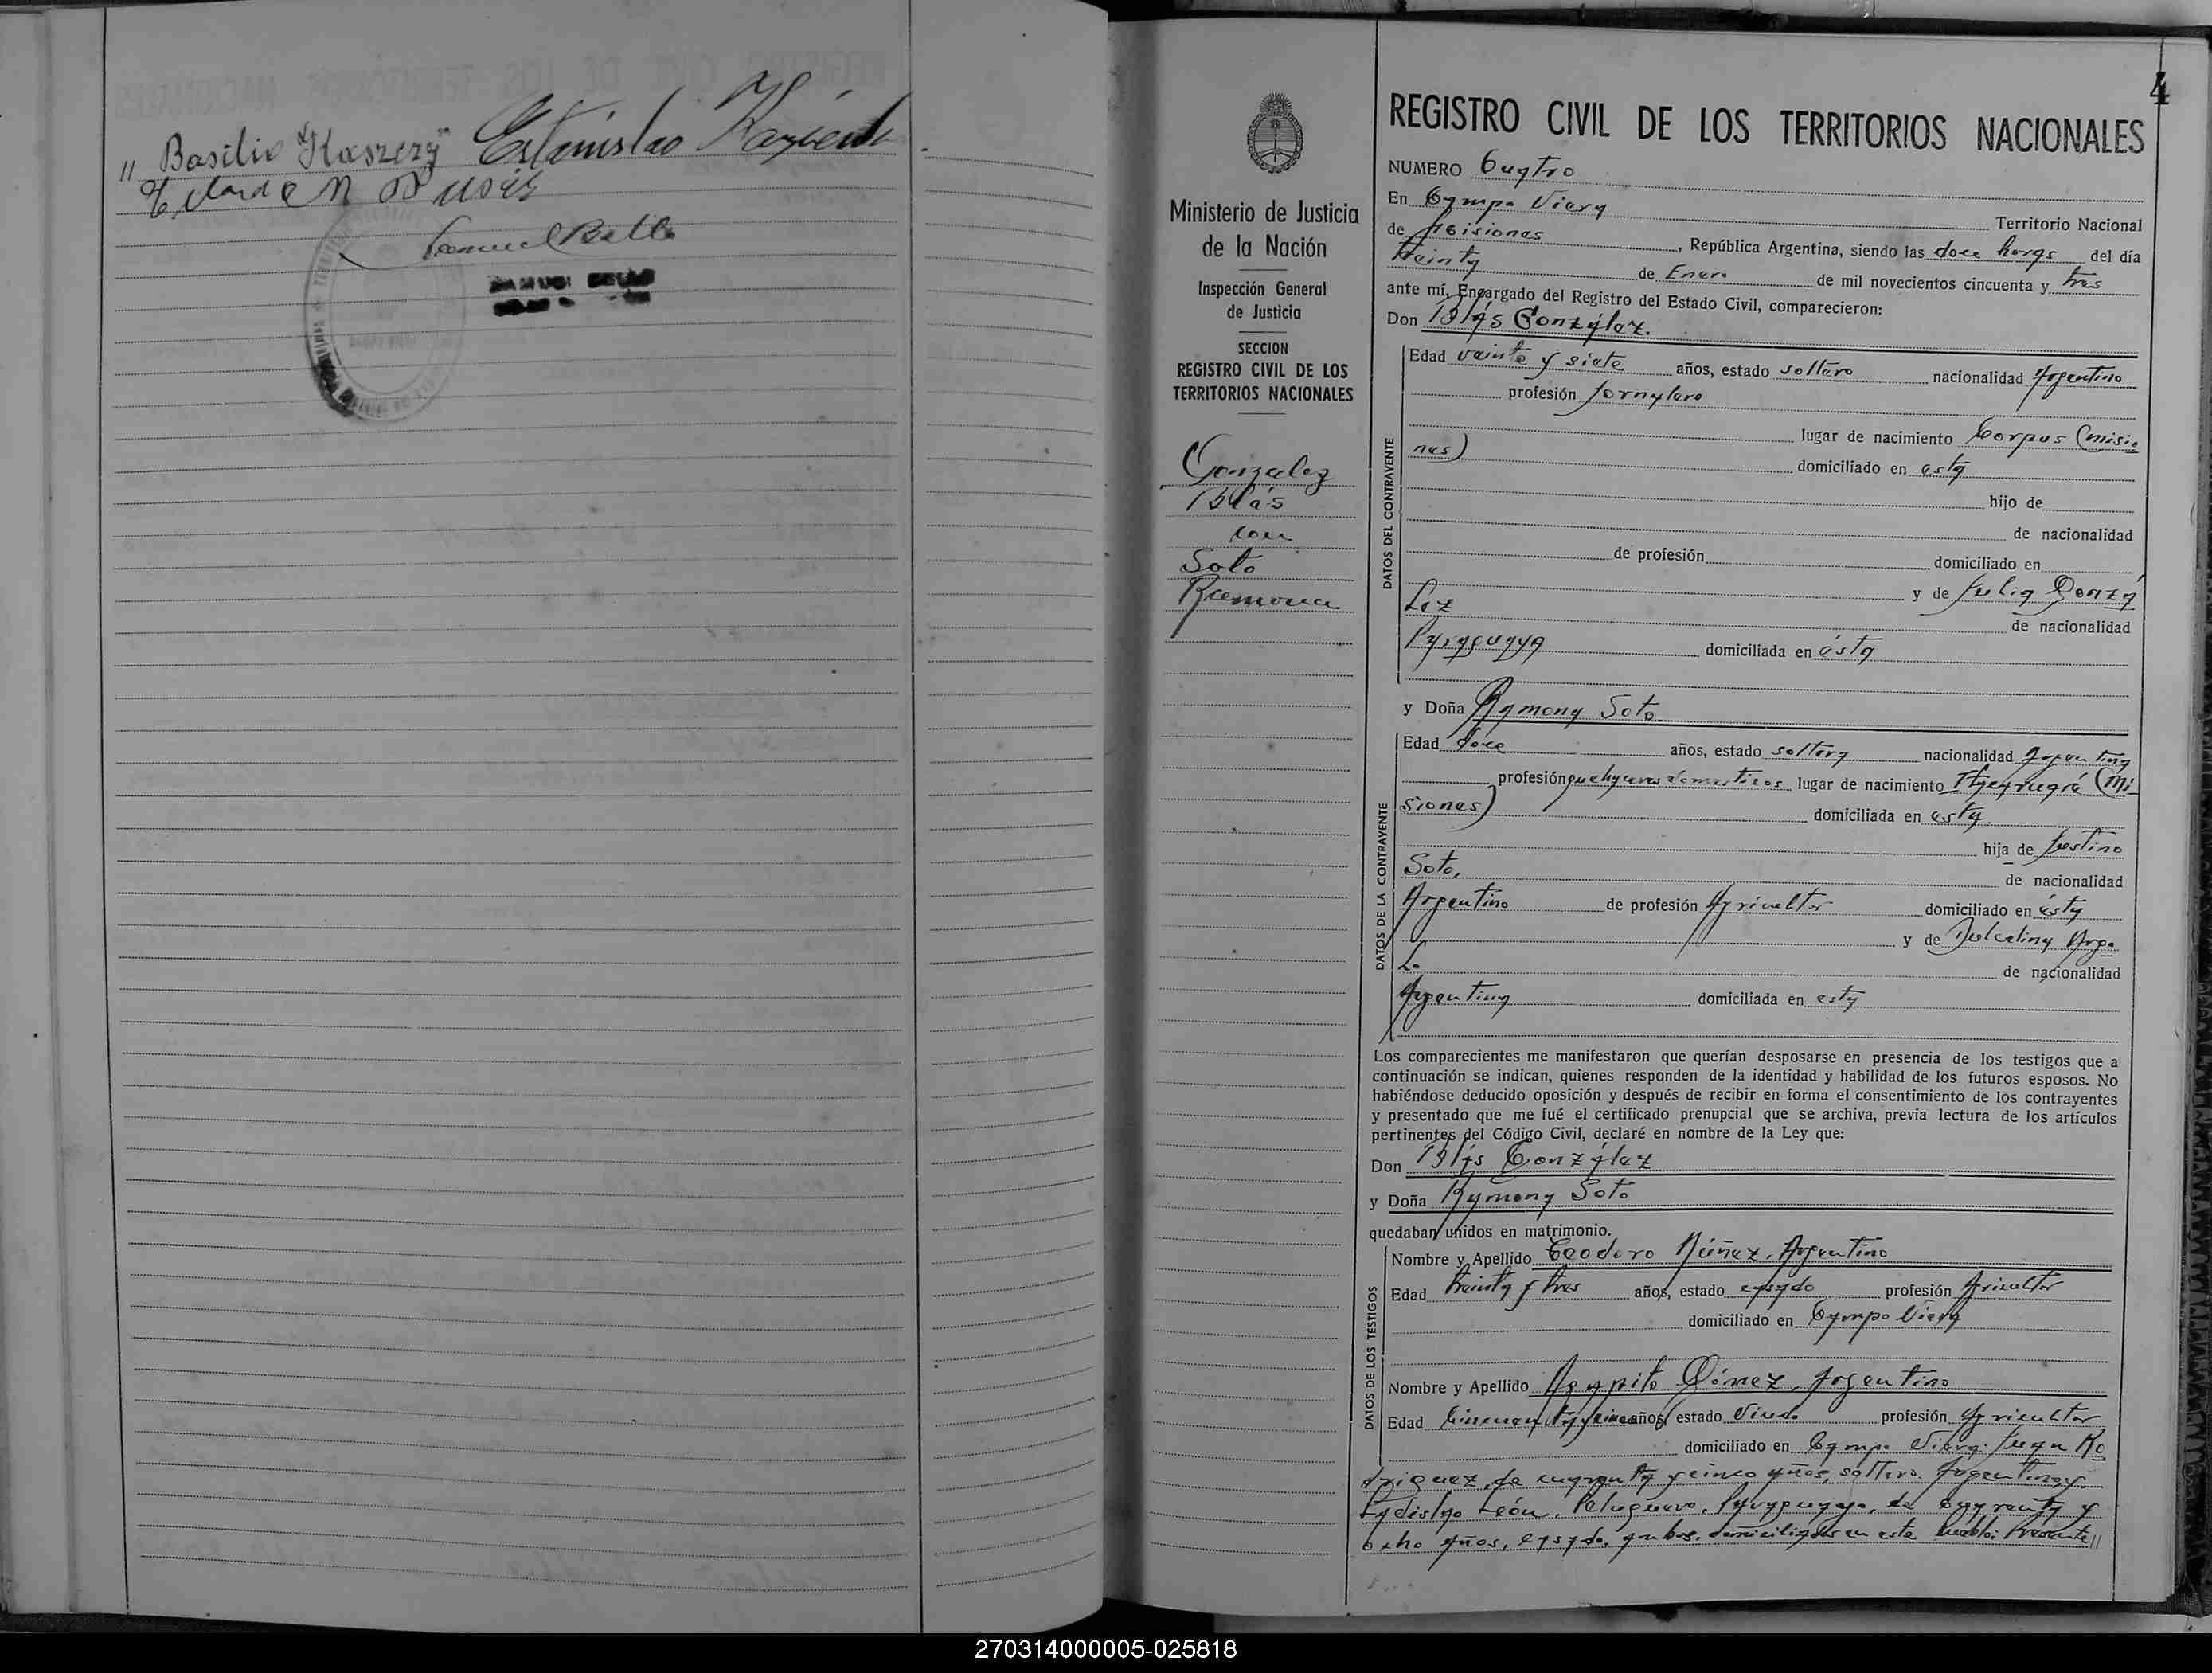 " Basilio Kaszczyj Estanislao
Samuel Bello
4
REGISTRO CIVIL DE LOS TERRITORIOS NACIONALES
Ministerio de Justicia
de la Nación
Inspección General
de Justicia
SECCION
REGISTRO CIVIL DE LOS
TERRITORIOS NACIONALES
Gonzalez
Blás
con
Soto
Ramona
NUMERO Cuatro
En Campo Viera Territorio Nacional
de Misiones, República Argentina, siendo las doce horas del día
de Enero de mil novecientos cincuenta y tres
ante mí, Encargado del Registro del Estado Civil, comparecieron:
Don Blás González.
DATOS DEL CONTRAYENTE
Edad veinte y siete años, estado soltero nacionalidad Argentino
profesión Jornalero
lugar de nacimiento Corpus (Misio
nes) domiciliado en esta
hijo de
de nacionalidad
de profesión domiciliado en
y de Julia Gonzá
lez de nacionalidad
Paraguaya domiciliada en ésta
y Doña Ramona Soto
DATOS DE LA CONTRAYENTE
Edad doce años, estado soltera nacionalidad Argentina
profesión quehaceres domesticos lugar de nacimiento (Mi
siones) domiciliada en esta.
hija de Justino
Soto, de nacionalidad
Argentino de profesión Agricultor domiciliado en ésta
y de
de nacionalidad
Argentina domiciliada en esta
Los comparecientes me manifestaron que querían desposarse en presencia de los testigos que a
continuación se indican, quienes responden de la identidad y habilidad de los futuros esposos. No
habiéndose deducido oposición y después de recibir en forma el consentimiento de los contrayentes
y presentado que me fué el certificado prenupcial que se archiva, previa lectura de los artículos
pertinentes del Código Civil, declaré en nombre de la Ley que:
Don Blás González
y Doña Ramona Soto
quedaban unidos en matrimonio.
DATOS DE LOS TESTIGOS
Nombre y Apellido Teodoro Núñez, Argentino
Edad treinta y tres años, estado casado profesión Agricultor
domiciliado en Campo Viera
Nombre y Apellido Agapito Gómez, Argentino
Edad Cincuenta y cinco años, estado Viudo profesión Agricultor
domiciliado en Campo Viera; Juan Ro
driguez, de cuarenta y cinco años, soltero, Argentino y
Ladislao León, Peluquero, Paraguayo, de cuarenta y
ocho años, casado, ambos domiciliados en este Pueblo: Presente //
270314000005-025818